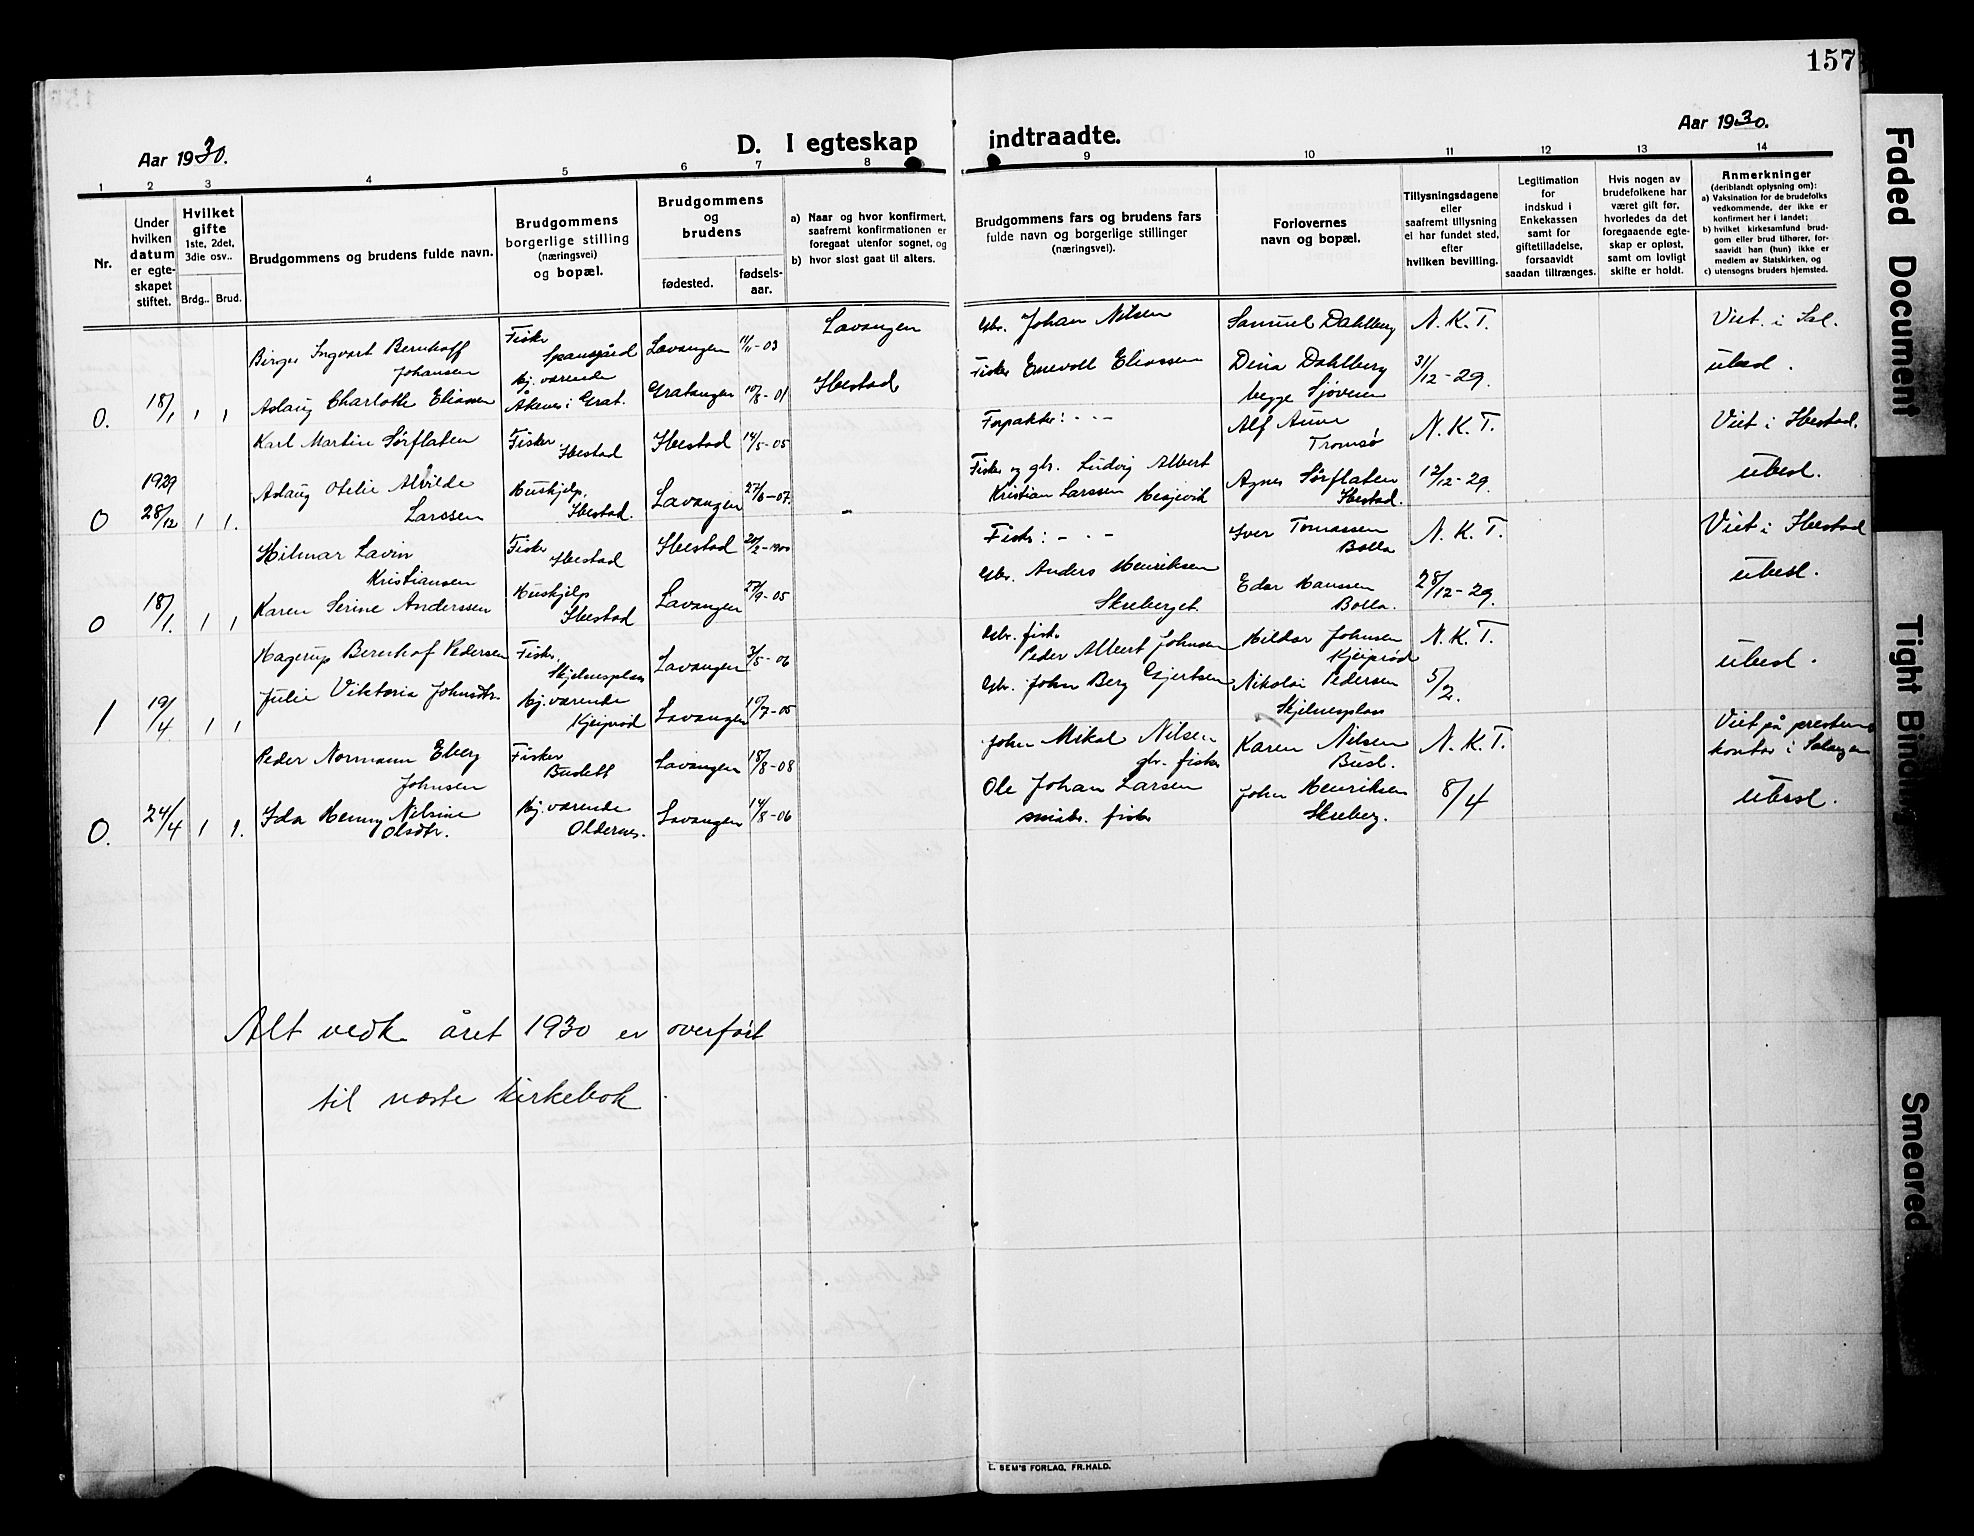 157
Aar 1930.
D. I egteskap indtraadte.
Aar 1930.
1 2 3 4 5 6 7 8 9 10 11 12 13 14
Nr.
Under hvilken datum er egteskapet stiftet.
Hvilket gifte 1ste, 2det, 3die osv..
Brdg.. Brud.
Brudgommens og brudens fulde navn.
Brudgommens borgerlige stilling (næringsvei) og bopæl.
Brudgommens og brudens
fødested.
fødsels-aar.
a) Naar og hvor konfirmert, saafremt konfirmationen er foregaat utenfor sognet, og
b) hvor sidst gaat til alters.
Brudgommens fars og brudens fars fulde navn og borgerlige stillinger (næringsvei).
Forlovernes navn og bopæl.
Tillysningsdagene eller saafremt tillysning ei har fundet sted, efter hvilken bevilling.
Legitimation for indskud i Enkekassen samt for giftetilladelse, forsaavidt saadan tiltrænges.
Hvis nogen av brudefolkene har været gift før, hvorledes da det foregaaende egteskap er opløst, samt om lovligt skifte er holdt.
Anmerkninger
(deriblandt oplysning om):
a) Vaksination for de brudefolks vedkommende, der ikke er konfirmert her i landet;
b) hvilket kirkesamfund brudgom eller brud tilhører, forsaavidt han (hun) ikke er medlem av Statskirken, og
c) utensogns bruders hjemsted.
Birger Ingvart Bernhoff Johansen Fisker Spansgård Lavangen 11/11-03 Lavangen Gbr. Johan Nilsen Samuel Dahlberg N. K. T. Viet i Sal.
0. 18/1 1 1 Aslaug Charlotte Eliassen Hj. værende Åkenes i Grat. Gratangen 10/8-01 Ibestad Fisker Enevold Eliassen Dina Dahlberg begge Sjøveien 31/12-29. ubesl.
Karl Martin Sørflaten Fisker, Ibestad Ibestad 14/5-05 Forpakter: - - - Alf Aune Tromsø N. K. T. Viet i Ibestad.
0 1929 28/12 1 1. Aslaug Otelie Alvilde Larssen Huskjelp, Ibestad. Lavangen 27/6-07. - Fisker og gbr. Ludvig Albert Kristian Larssen Hesjevik Agnes Sørflaten Ibestad. 12/12-29. ubesl.
Hilmar Lavin Kristiansen Fisker Ibestad Ibestad 20/2-1900 Fisker: - - - Iver Tomassen Bolla N. K. T. Viet i Ibestad
0 18/1. 1 1 Karen Serine Anderssen Huskjelp Ibestad Lavangen 27/9-05 Gbr. Anders Henriksen Skreberget Edar Hanssen Bolla. 28/12-29. ubesl.
Hagerup Bernhof Pedersen Fisker, Skjelnesplass Lavangen 3/5-06 Gbr. fisker Peder Albert Johnsen Hildar Johnsen Kjeiprød N. K. T.
1 19/4. 1 1 Julie Viktoria Johnsdtr. Hj. værende Kjeiprød Lavangen 10/7-05 Gbr. John Berg Gjertsen Nikolai Pedersen Skjelnesplass 5/2. ubesl.
Peder Normann Eberg Johnsen Fisker Budett Lavangen 18/8-08 John Mikal Nilsen gbr. fisker Karen Nilsen Busl. N. K. T. Viet på prestens kontor i Salangen
0. 24/4 1 1. Ida Henny Nilsine Olsdtr. Hj. værende Oldernes. Lavangen 14/8-06 Ole Johan Larsen småbr. fisker John Henriksen Skreberg. 8/4 ubesl.
Alt vedk. året 1930 er overført
til næste kirkebok.
L. SEM'S FORLAG, FR.HALD.
Faded Document
Tight Binding
Smeared